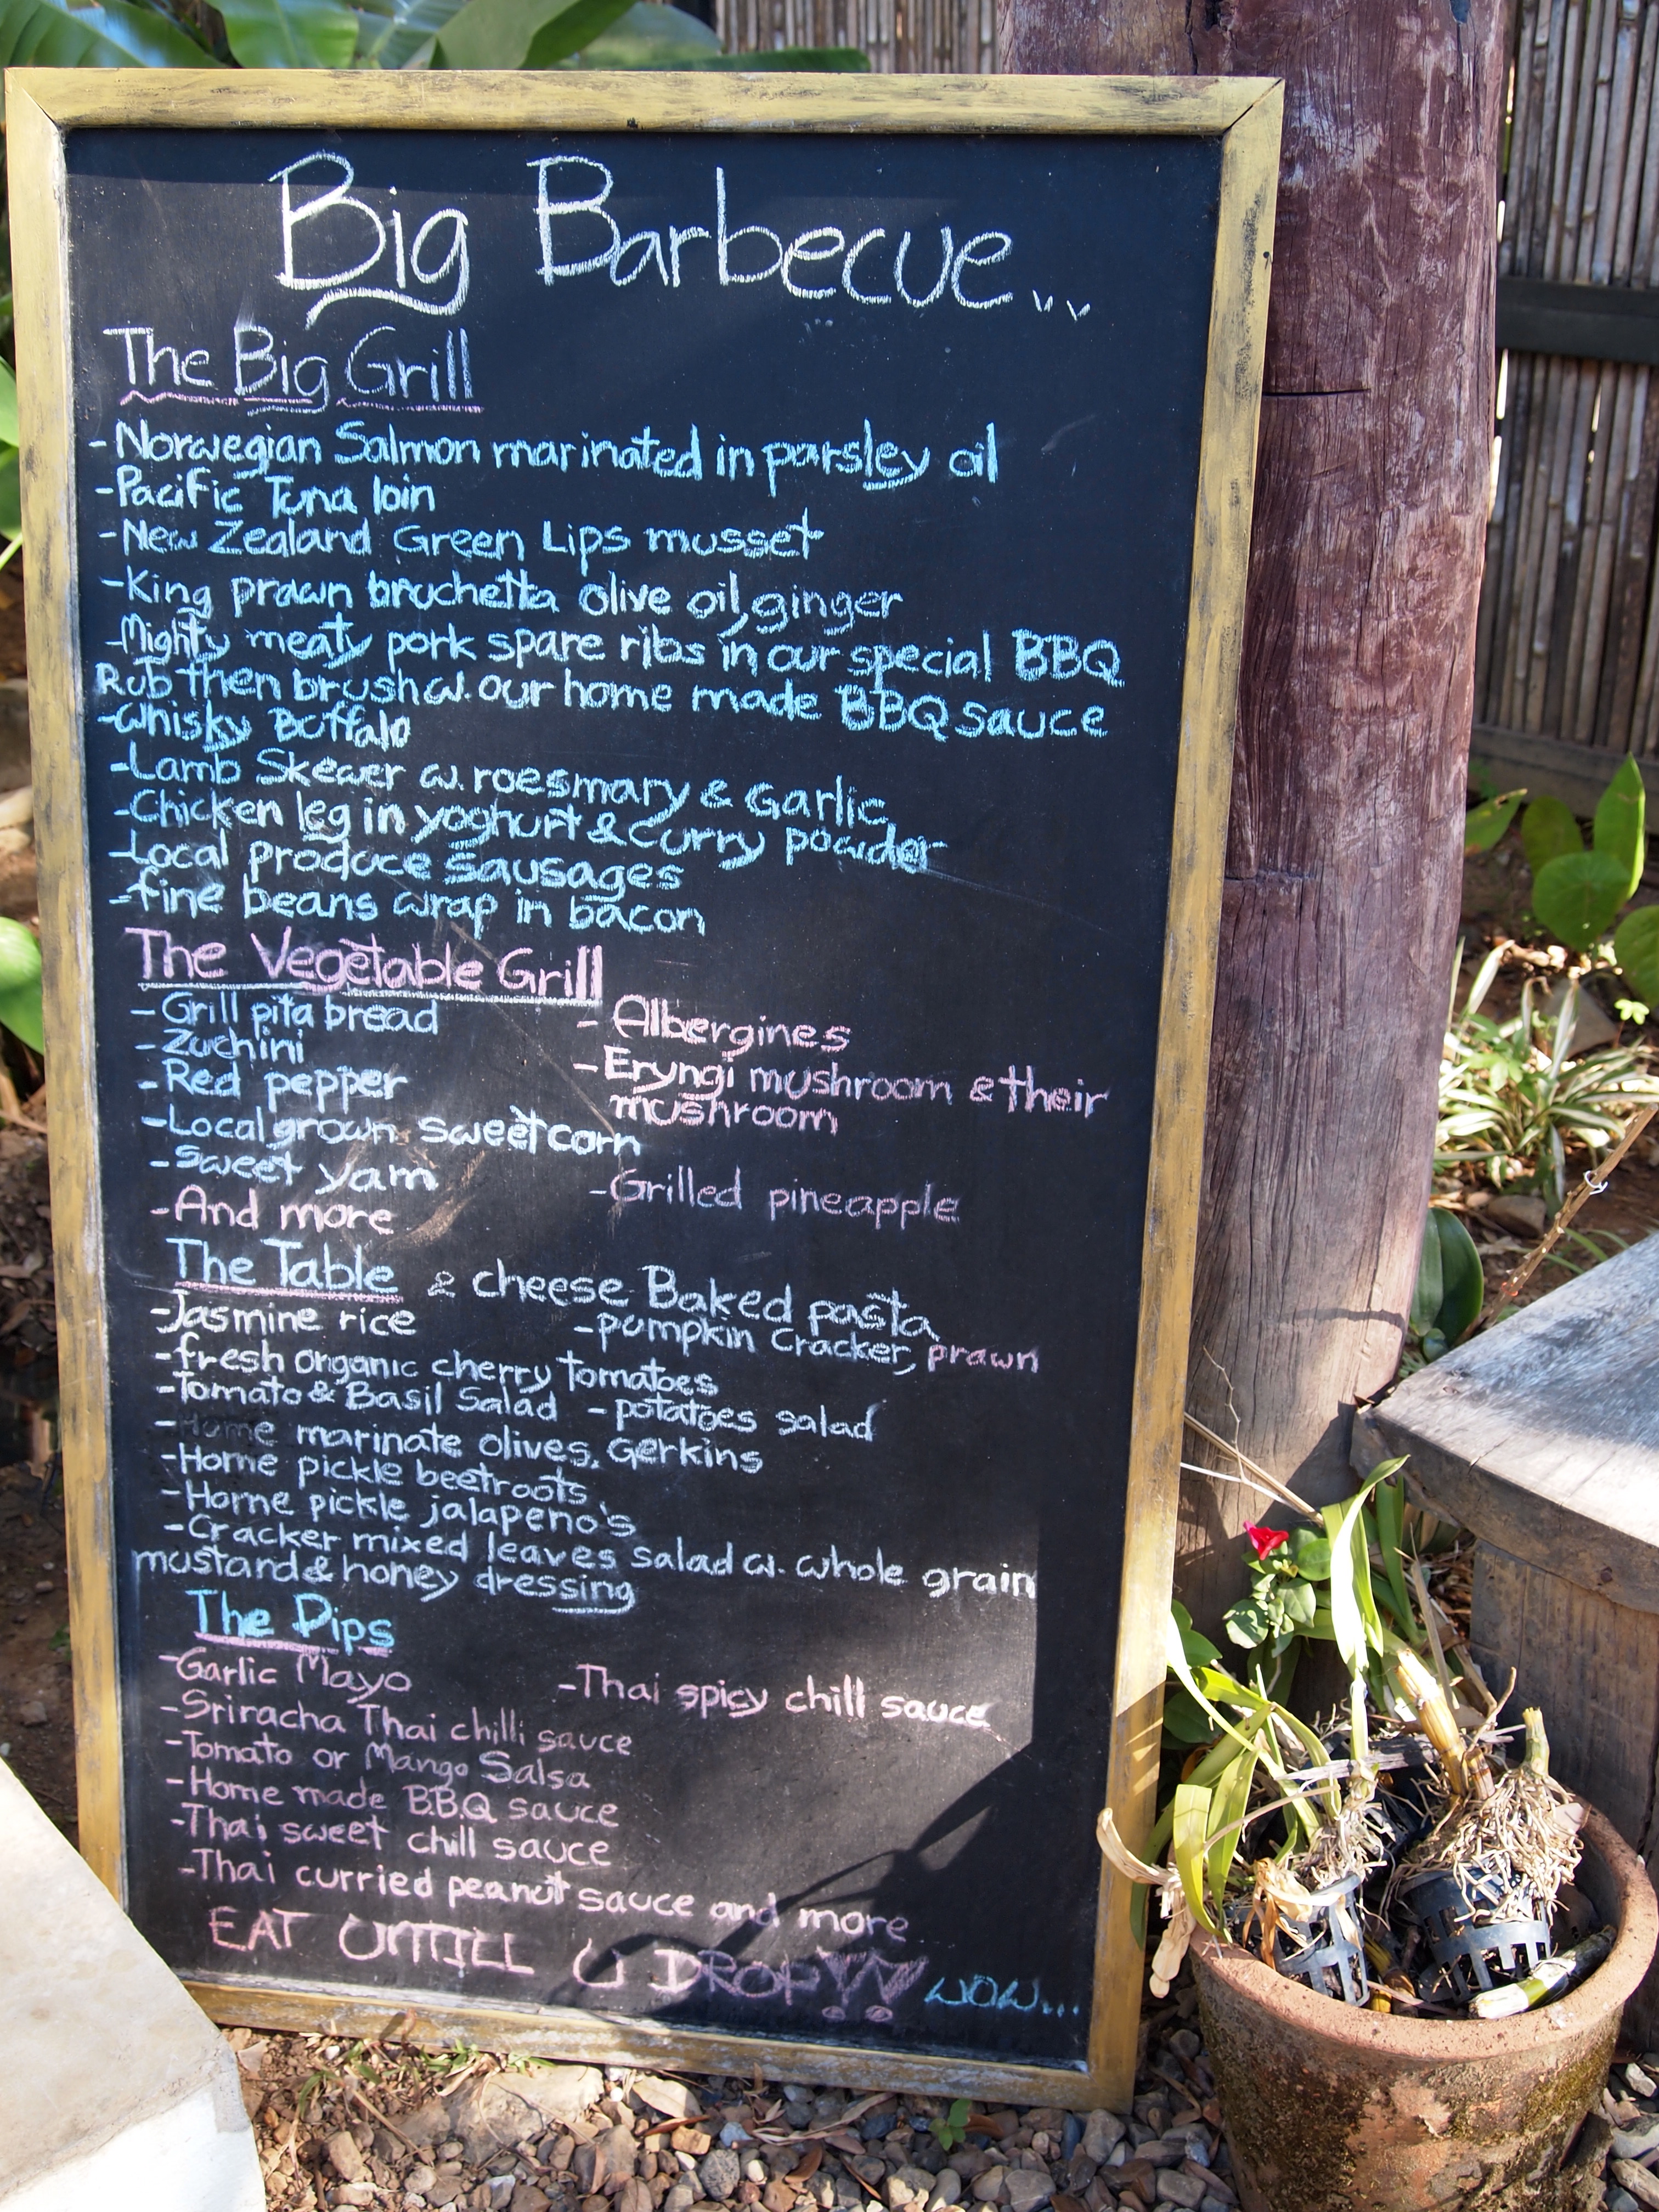 Big Barbecue...
The Big Grill
-Norwegian Salmon marinated in parsley oil
-Pacific Tuna loin
-New Zealand Green Lips musset
-King prawn bruchetta olive oil, ginger
-Mighty meaty pork spare ribs in our special BBQ
Rub then brush w. our home made BBQ sauce
-Whisky Buffalo
-Lamb Skewer w. roesmary & Garlic
-Chicken leg in yoghurt & curry powder
-Local produce sausages
-fine beans wrap in bacon
The Vegetable Grill
-Grill pita bread
-Zuchini
-Red pepper
-Local grown sweetcorn
-Sweet yam
-And more
-Albergines
-Eryngi mushroom & their
mushroom
-Grilled pineapple
The Table
& cheese Baked pasta
-Jasmine rice
-pumpkin cracker, prawn
-fresh organic cherry tomatoes
-Tomato & Basil Salad -potatoes salad
-Home marinate olives, Gerkins
-Home pickle beetroots
-Home pickle jalapeno's
-Cracker mixed leaves salad w. whole grain
mustand & honey dressing
The Dips
-Garlic Mayo
-Thai spicy chill sauce
-Sriracha Thai chilli sauce
-Tomato or Mango Salsa
-Home made B.B.Q sauce
-Thai sweet chill sauce
-Thai curried peanut sauce and more
EAT UNTILL U DROP!! WOW...